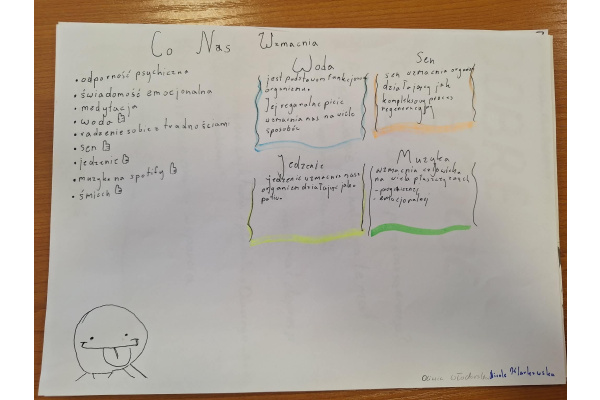 Co Nas Wzmacnia
• odporność psychiczna
• świadomość emocjonalna
• medytacja
• woda
• radzenie sobie z trudnościami
• sen
• jedzenie
• muzyka na spotify
• śmiech
Woda
jest podstawom funkcjonow
organizmu.
Jej regularne picie
wzmacnia nas na wiele
sposobów
Sen
sen wzmacnia organizm
działający jak
kompleksowy proces
regeneracyjny
Jedzenie
jedzenie wzmacnia nasz
organizm działając jako
paliwo
Muzyka
wzmacnia człowieka
na wielu płaszczyznach
- psychicznej
- emocjonalnej